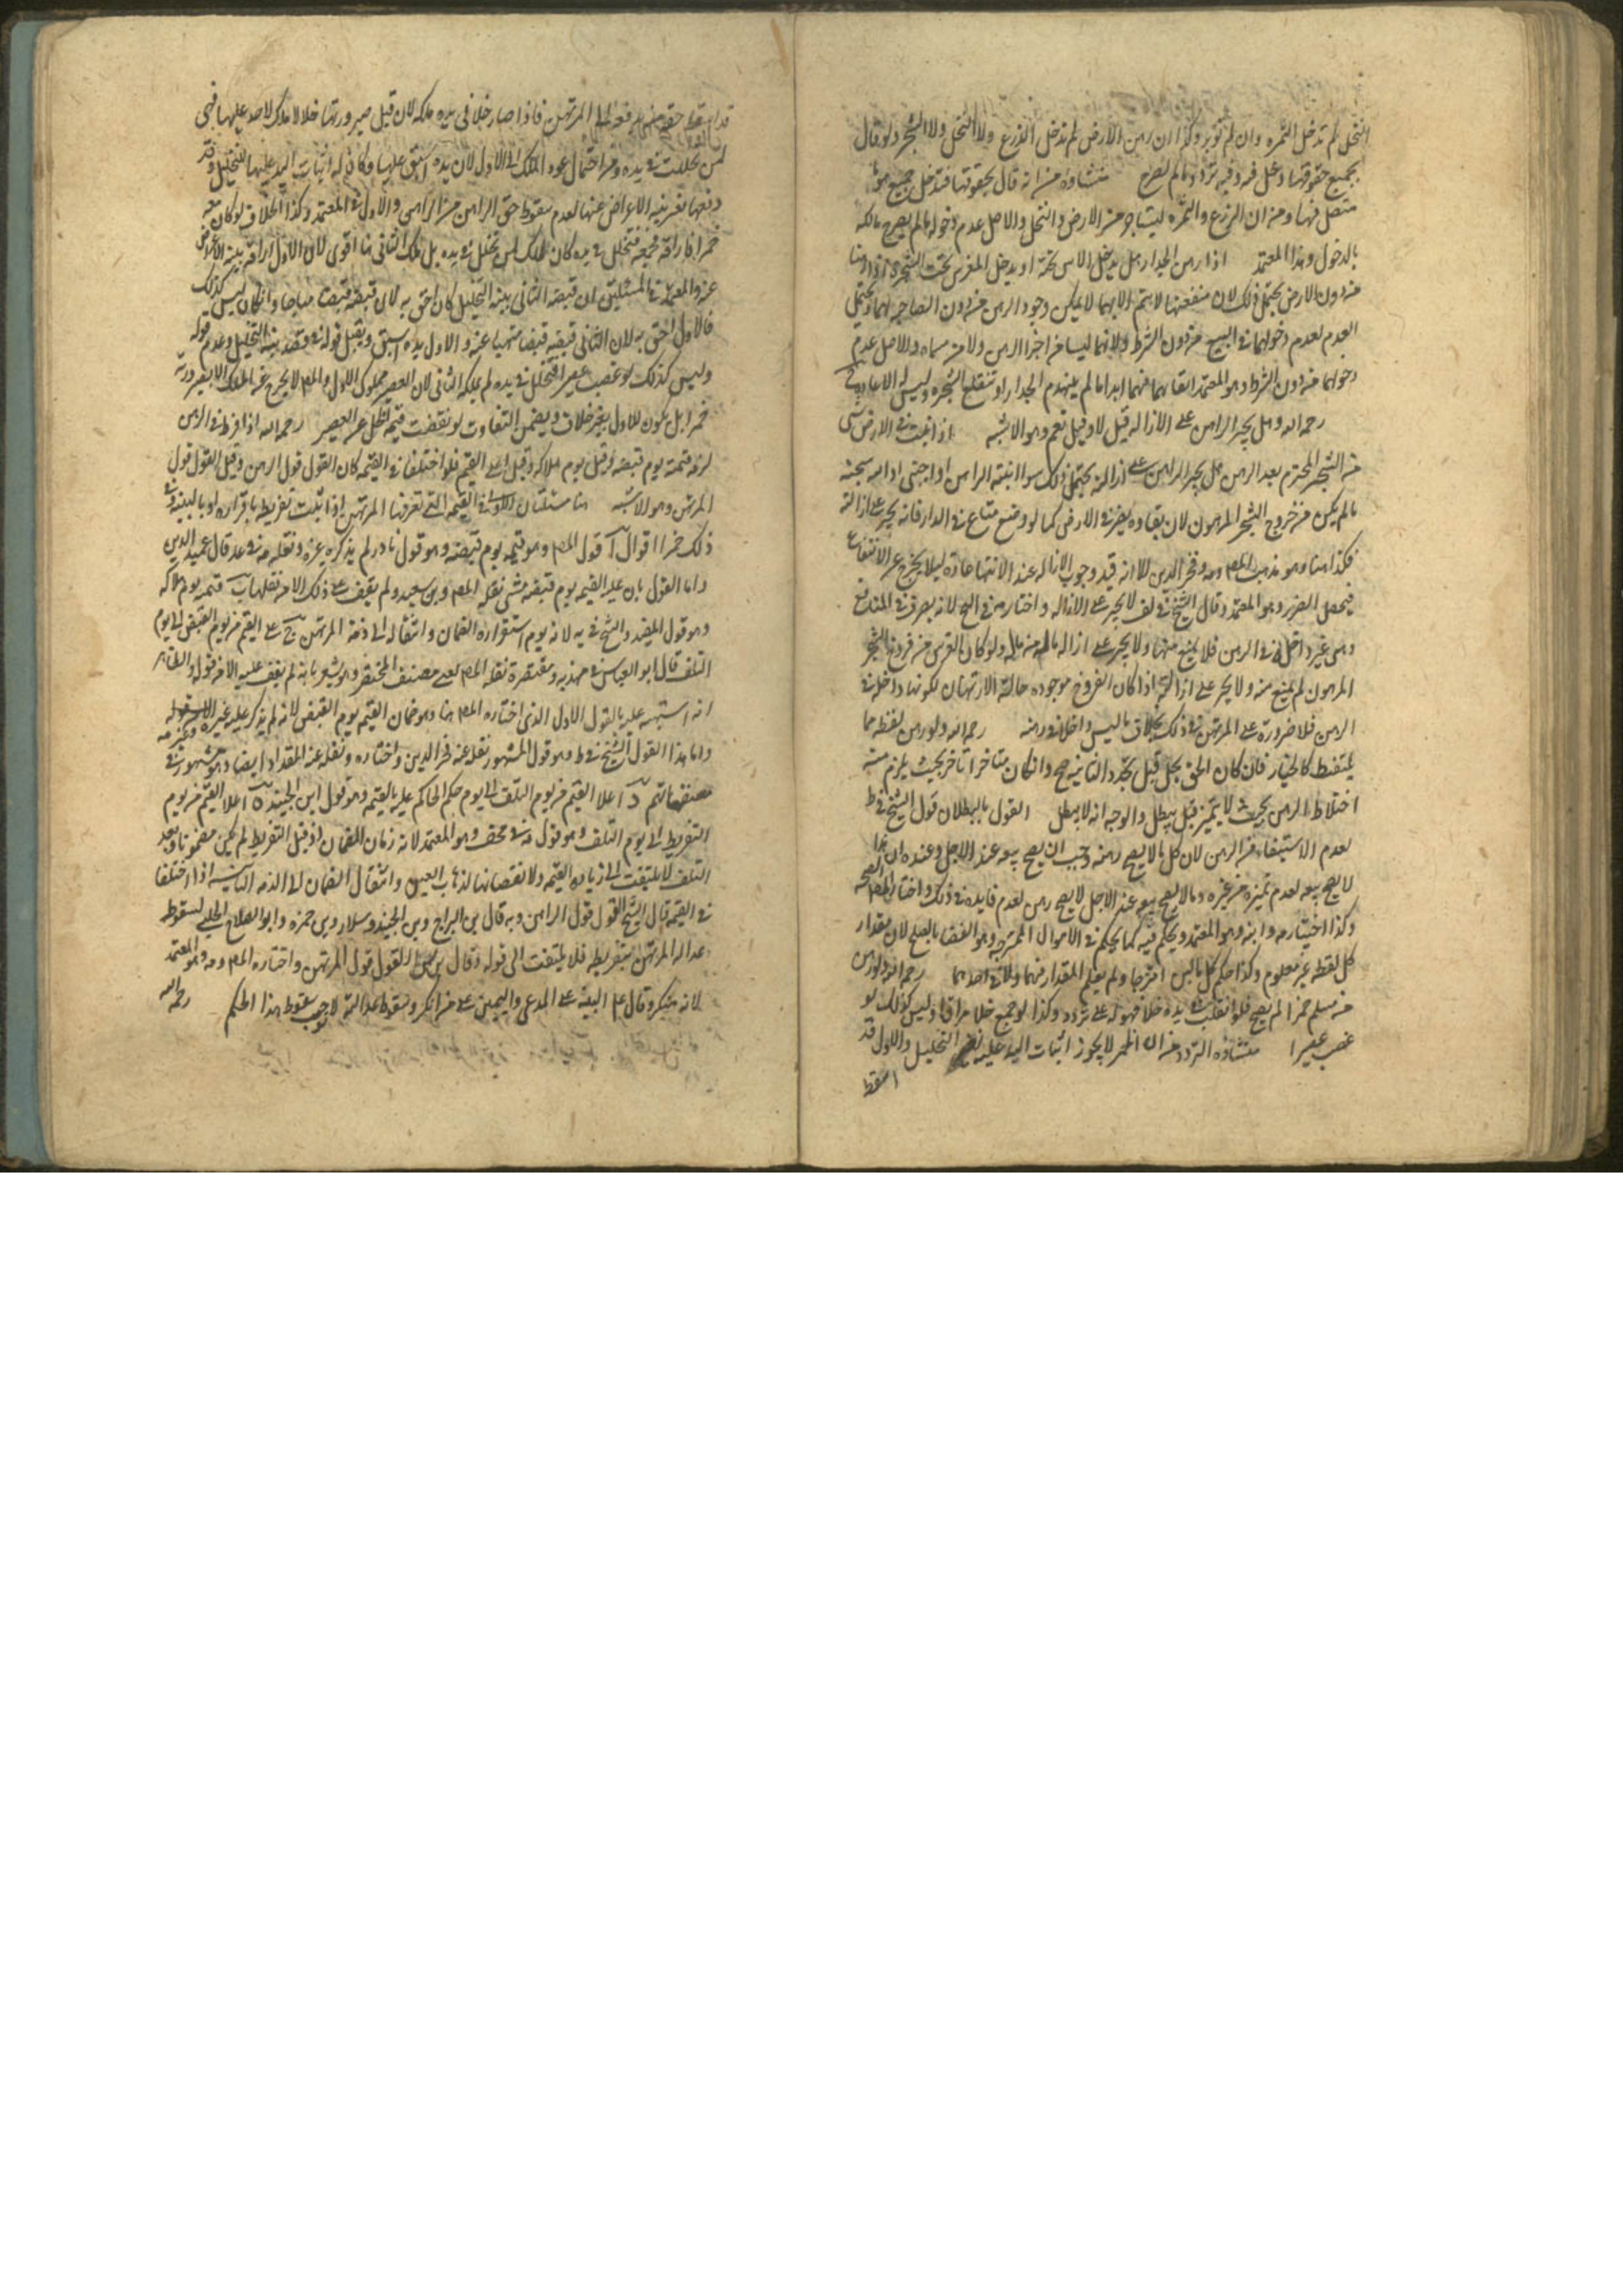 النخل لم تدخل الثمره وان لم تؤبر وكذا ان رهن الارض لم تدخل الزرع ولا النخل ولا الشجر ولو قال
بجميع حقوقها دخل فيه وفيه تردد ما لم يصرح منشاؤه من انه قال بحقوقها فتدخل جميع ما
متصل فيها ومن ان الزرع والثمره ليستا جزء من الارض والنخل والاصل عدم دخوله ما لم يصرح مالكه
بالدخول وهذا المعتمد اذا رهن الجدار هل يدخل الاس تحته او يدخل المغرس تحت الشجره اذا رهنا
من دون الارض يحتمل ذلك لان منفعتها لا يتم الا بهما لا يمكن وجود الرهن من دون المصاحبه لهما ويحتمل
العدم لعدم دخولهما في البيع من دون الشرط ولانهما ليسا من اجزا الرهن ولا من مسماه والاصل عدم
دخولهما من دون الشرط وهو المعتمد ابقاهما فيهما ابدا ما لم ينهدم الجدار او تنقلع الشجره وليس له الاعاده في
رحمه الله وهل يجبر الراهن على الازاله قيل لا وقيل نعم وهو الاشبه اذا نبت في الارض شي
من الشجر المحترم بعد الرهن هل يجبر الراهن على ازالته يحتمل ذلك سوا انبته الراهن او اجنبي اذا لم
ما لم يكن من خروج الشجر المرهون لان بقاوه يضر في الارض كما لو وضع متاع في الدار فانه يجبر على ازالته
فكذا هنا وهو مذهب المص وفخر الدين الا انه قيد وجوب الازاله عند الانتها عادة ليلا يخرج عن الانتفاع
فيحصل الضرر وهو المعتمد وقال الشيخ في لف لا يجبر على الازاله واختاره في لانه تصرف في المنافع
وهي غير داخله في الرهن فلا يمنع منها ولا يجبر على ازاله ماله من ملكه ولو كان الغرس من فروخ الشجر
المرهون لم يمنع منه ولا يجبر على ازالته اذا كان الفروخ موجوده حالة الارتهان لكونها داخله في
الرهن فلا ضرورة على المرتهن في ذلك بخلاف ما ليس داخلا في رهنه رحمه الله ولو رهن لقطه مما
يلتقط كالخيار فان كان الحق يحل قبل تجدد الثانيه صح وان كان متاخرا تاخر بحيث يلزم منه
اختلاط الرهن بحيث لا يتميز قيل يبطل والوجه انه لا يبطل القول بالبطلان قول الشيخ في ط
لعدم الاستيفاء من الرهن لان كل ما لا يصح رهنه وجب ان يصح بيعه عند الاجل وعنده ان هذا
لا يصح بيعه لعدم تميزه من غيره وما لا يصح بيعه عند الاجل لا يصح رهن لعدم فايده في ذلك واختار المص الصحه
وكذا اختياره وابنه وهو المعتمد ويحكم فيه كما يحكم في الاموال الممتزجه وهو القضا بالصلح لان مقدار
كل لقطه غير معلوم وكذا حكم كل مالين امتزجا ولم يعلم المقدار منهما ولا في احدهما رحمه الله ولو رهن
من مسلم خمرا لم يصح فلو انقلبت في يده خلا فهو له على تردد وكذا لو جمع خلا مراقا وليس كذلك لو
غصب عصيرا منشاؤه التردد من ان الخمر لا يجوز اثبات اليد عليه لغير التخليل والاول قد
اسقط
قد اسقط حقه منها بدفعه الى المرتهن فاذا صار خلا في يده ملكه لان قبل صيرورتها خلا لا ملك لاحد عليها فهي
لمن تخللت في يده ومن احتمال عود الملك الى الاول لان يده اسبق عليها وكان له اثبات اليد عليها للتخليل وقد
دفعها بغير نيه الاعراض عنها لعدم سقوط حق الراهن من الرهن والاول في المعتمد وكذا الخلاف لو كان معه
خمرا فاراقه فجمعه فتخلل في يده كان ملك لمن تخلل في يده بل ملك الثاني هنا اقوى لان الاول اراقه بنيه الاعراض
عنه والمعتمد في المسئلتين ان قبضه الثاني بنيه التخليل كان احق به لان قبضه قبضا مباحا وان كان ليس كذلك
فالاول احق به لان الثاني قبضه قبضا منهيا عنه والاول يده اسبق ويقبل قوله في قصد بنيه التخليل وعدم قوله
وليس كذلك لو غصب عصيرا فتخلل في يده لم يملكه الثاني لان العصير مملوك الاول والمص لا يخرج عن الملك الا بصيرورته
خمرا بل يكون للاول بغير خلاف ويضمن التفاوت لو نقصت قيمة الخل عن العصير رحمه الله اذا فرط في الرهن
لزمه قيمته يوم قبضه وقيل يوم هلاكه وقيل اعلى القيم فلو اختلفا في القيمه كان القول قول الراهن وقيل القول قول
المرتهن وهو الاشبه هنا مسئلتان الاولى في القيمه التي تعرفها المرتهن اذا ثبت تفريطه باقراره او بالبينه وفي
ذلك خمس اقوال آ قول المص وهو قيمه يوم قبضه وهو قول نادر لم يذكره غيره ونقله في عد قال عميد الدين
واما القول بان عليه القيمه يوم قبضه شي نقله المص وبن سعيد ولم يقف على ذلك الا من نقلهما ب قيمته يوم هلاكه
وهو قول المفيد والشيخ في يه لانه يوم استقراره الضمان وانتقاله الى ذمة المرتهن ج على القيم من يوم القبض الى يوم
التلف قال ابو العباس في مهذبه ومقتصره نقله المص يعني مصنف المختصر وهو يشعر بانه لم يقف عليه الا من قوله والظاهر
انه اشتبه عليه بالقول الاول الذي اختاره المص هنا وهو ضمان القيمه يوم القبض لانه لم يذكر عليه غيره
واما هذا القول الشيخ في ط وهو قول المشهور نقله عنه فخر الدين واختاره ونقله عنه المقداد ايضا وهو مشهور في
مصنفاتهم د اعلا القيم من يوم التلف الى يوم حكم الحاكم عليه بالقيمه وهو قول ابن الجنيد ه اعلا القيم من يوم
التفريط الى يوم التلف وهو قول في وهو المعتمد لانه زمان الضمان اذ قبل التفريط لم يكن مضمونا وبعد
التلف لا يلتفت الى زياده القيمه ولا نقصانها لذهاب العين وانتقال الضمان الى الذمه الثانيه اذا اختلفا
في القيمه قال الشيخ القول قول الراهن وبه قال بن البراج وبن الجنيد وسلار وبن حمزه وابو الصلاح الحلبي لسقوط
عداله المرتهن بتفريطه فلا يلتفت الى قوله وقال بن ادريس القول قول المرتهن واختاره المص وهو المعتمد
لانه منكر وقال ع البينه على المدعي واليمين على من انكر وسقوط عدالته لا توجب سقوط هذا الحكم رحمه الله